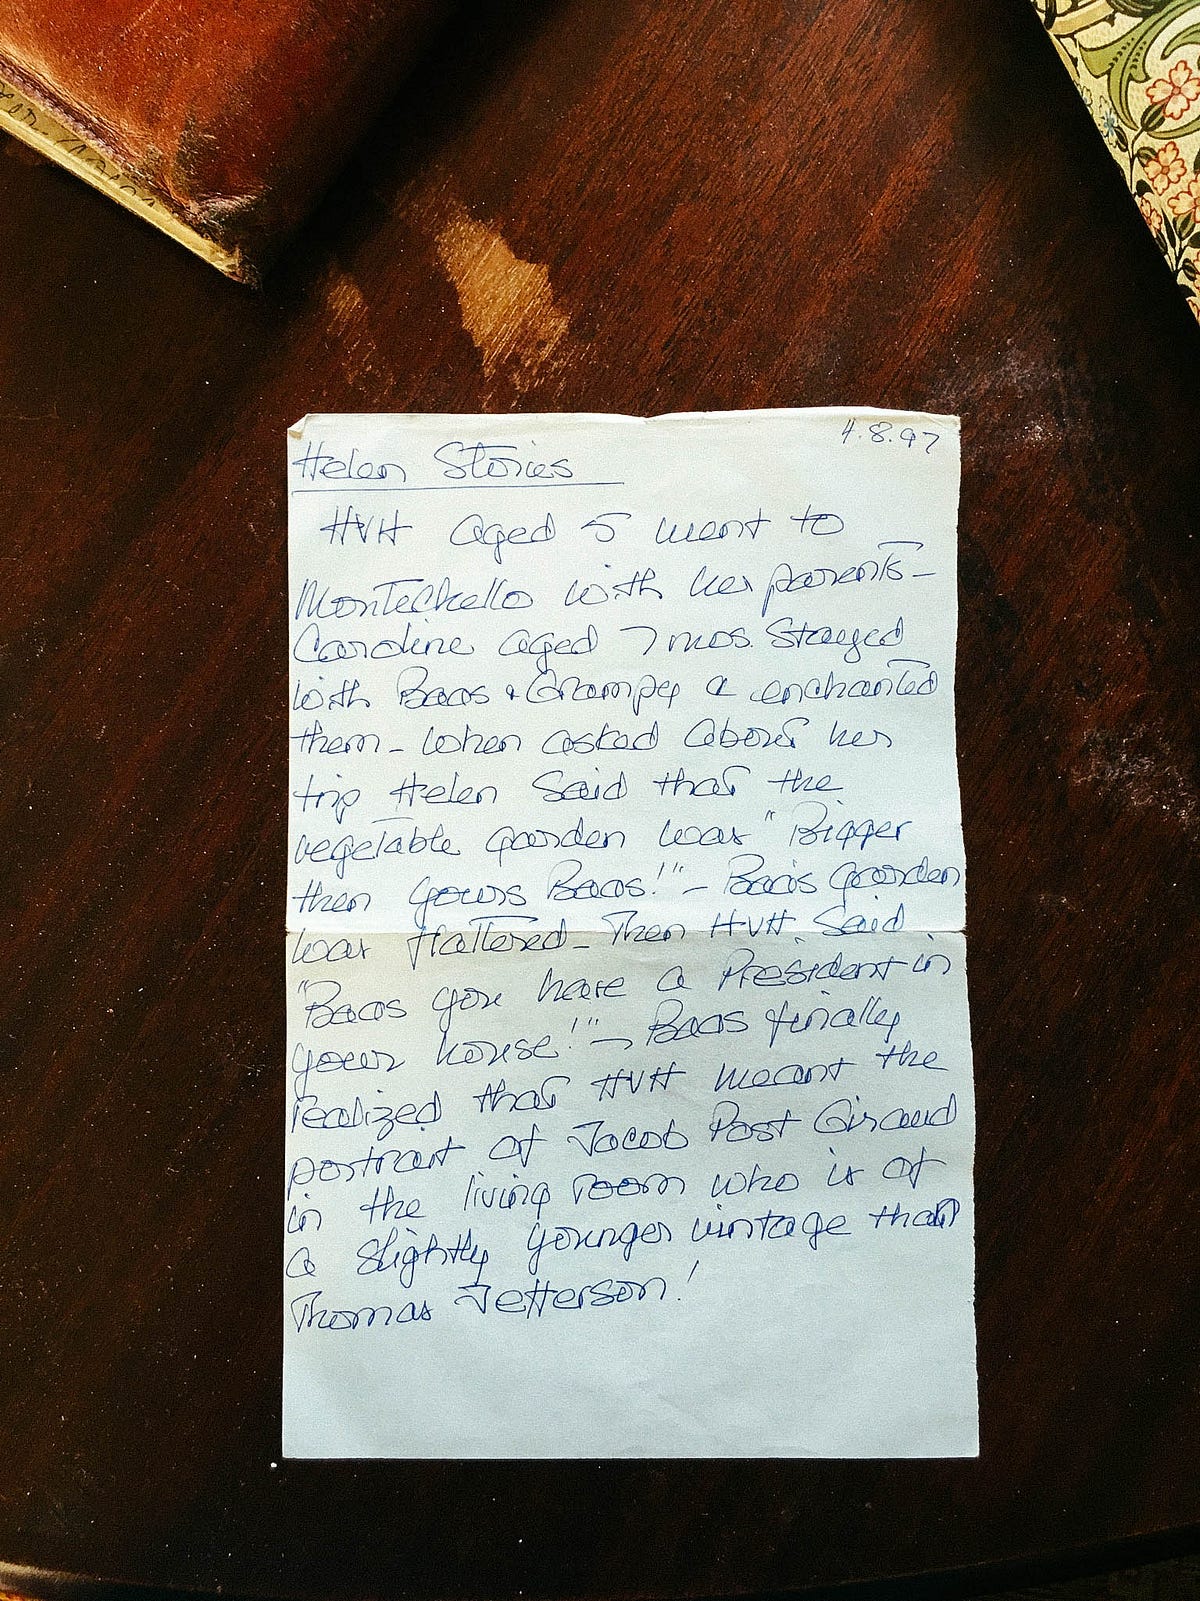 4.8.97
Helen Stories
HVH aged 5 went to
Montechello with her parents -
Caroline aged 7 mos. Stayed
with Baas + Grampy & enchanted
them - When asked about her
trip Helen Said that the
vegetable garden was "Bigger
then yours Baas!" - Baas garden
was flattered - Then HVH Said
"Baas you have a President in
your house!" - Baas finally
realized that HVH meant the
portrait of Jacob Post Giraud
in the living room who is of
a slightly younger vintage than
Thomas Jefferson!